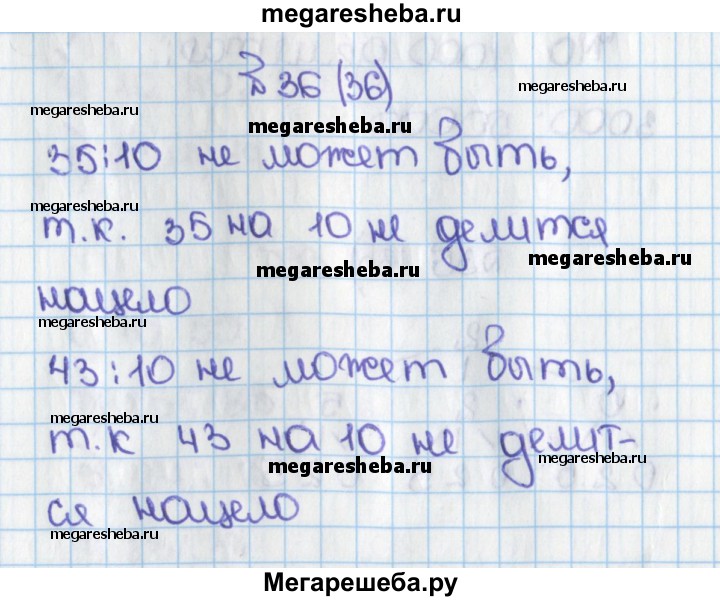 megaresheba.ru
№ 36 (36)
megaresheba.ru
megaresheba.ru
megaresheba.ru
35:10 не может быть,
megaresheba.ru
т.к. 35 на 10 не делится
megaresheba.ru
megaresheba.ru
нацело
megaresheba.ru
43:10 не может быть,
megaresheba.ru
т.к 43 на 10 не делит-
megaresheba.ru
megaresheba.ru
ся нацело
megaresheba.ru
Мегарешеба.ру